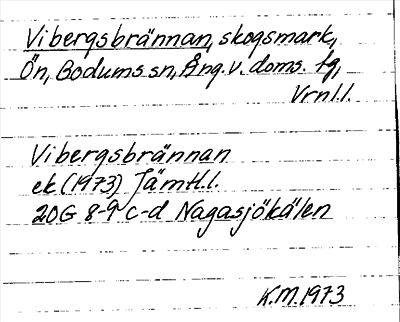 Vibergsbrännan, skogsmark,
Ön, Bodums sn, Ång. v. doms. tg,
Vrnl.l.
Vibergsbrännan
ek (1973) Jämtl.l.
20G 8-9 c-d Nagasjökälen
K.M.1973